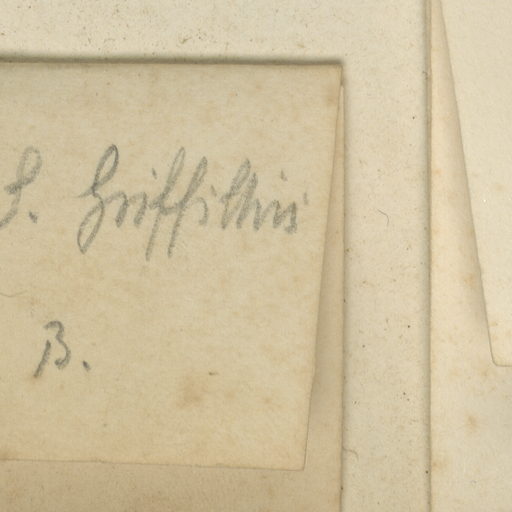 S. Griffithii
B.